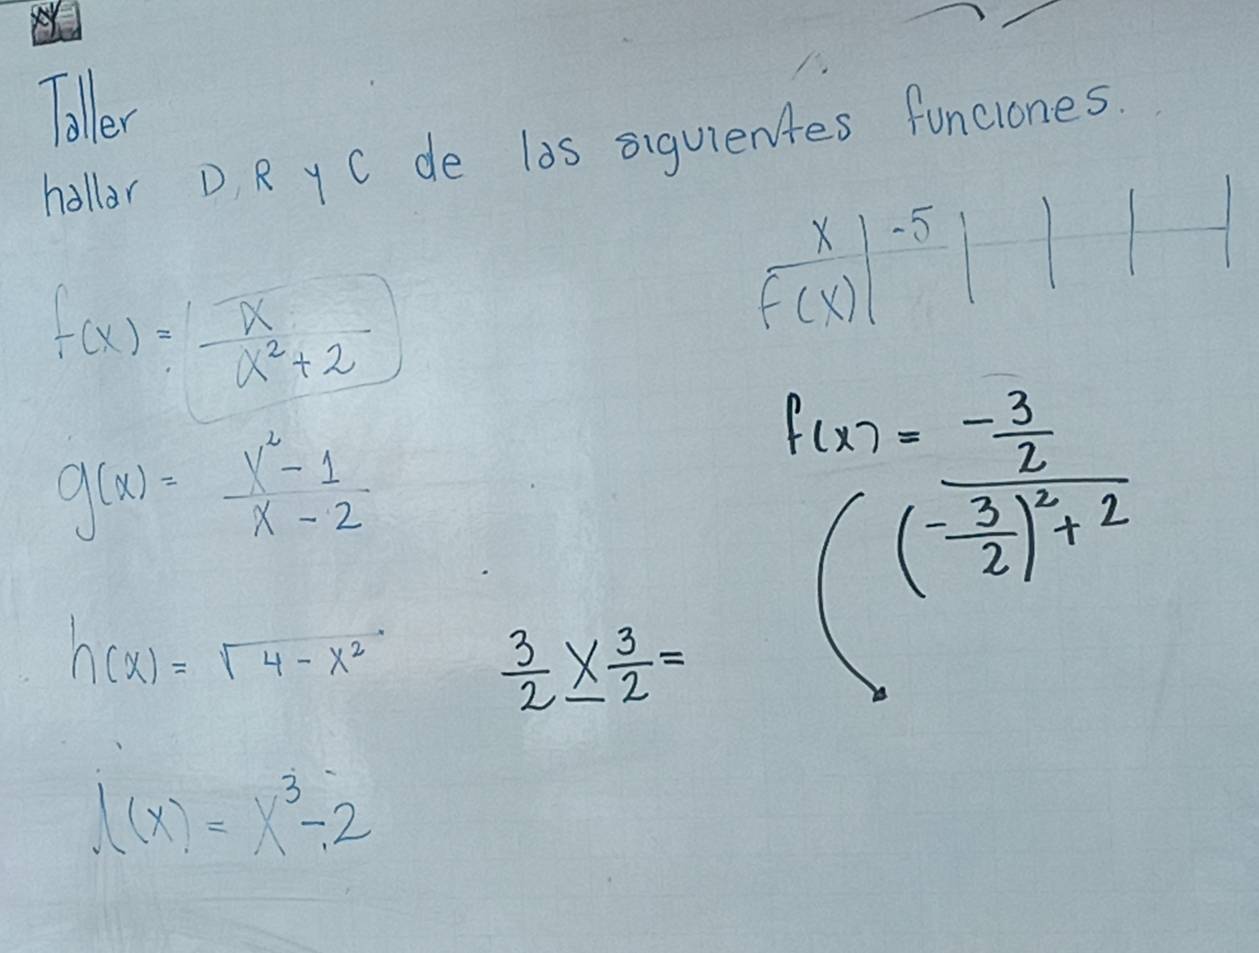 Taller
hallar D, R y C de las siguientes funciones.
x | -5 | | | |
f(x) | | | | |
f(x) = x / x² + 2
g(x) = x² - 1 / x - 2
h(x) = √4 - x²
i(x) = x³ - 2
f(x) = -3/2 / (-3/2)² + 2
3/2 X 3/2 =